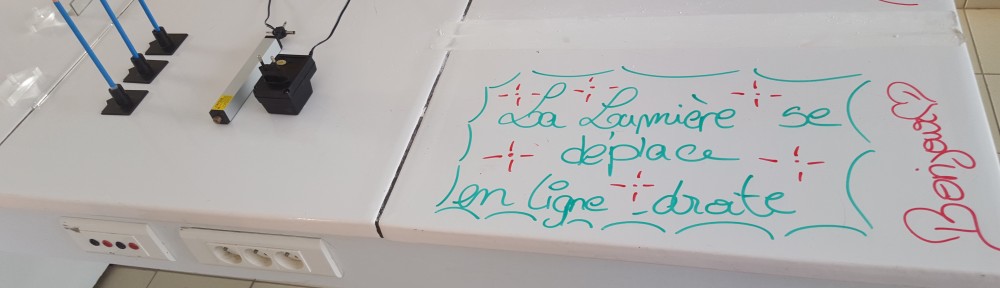 La Lumière se
déplace
en ligne droite
Bonjour